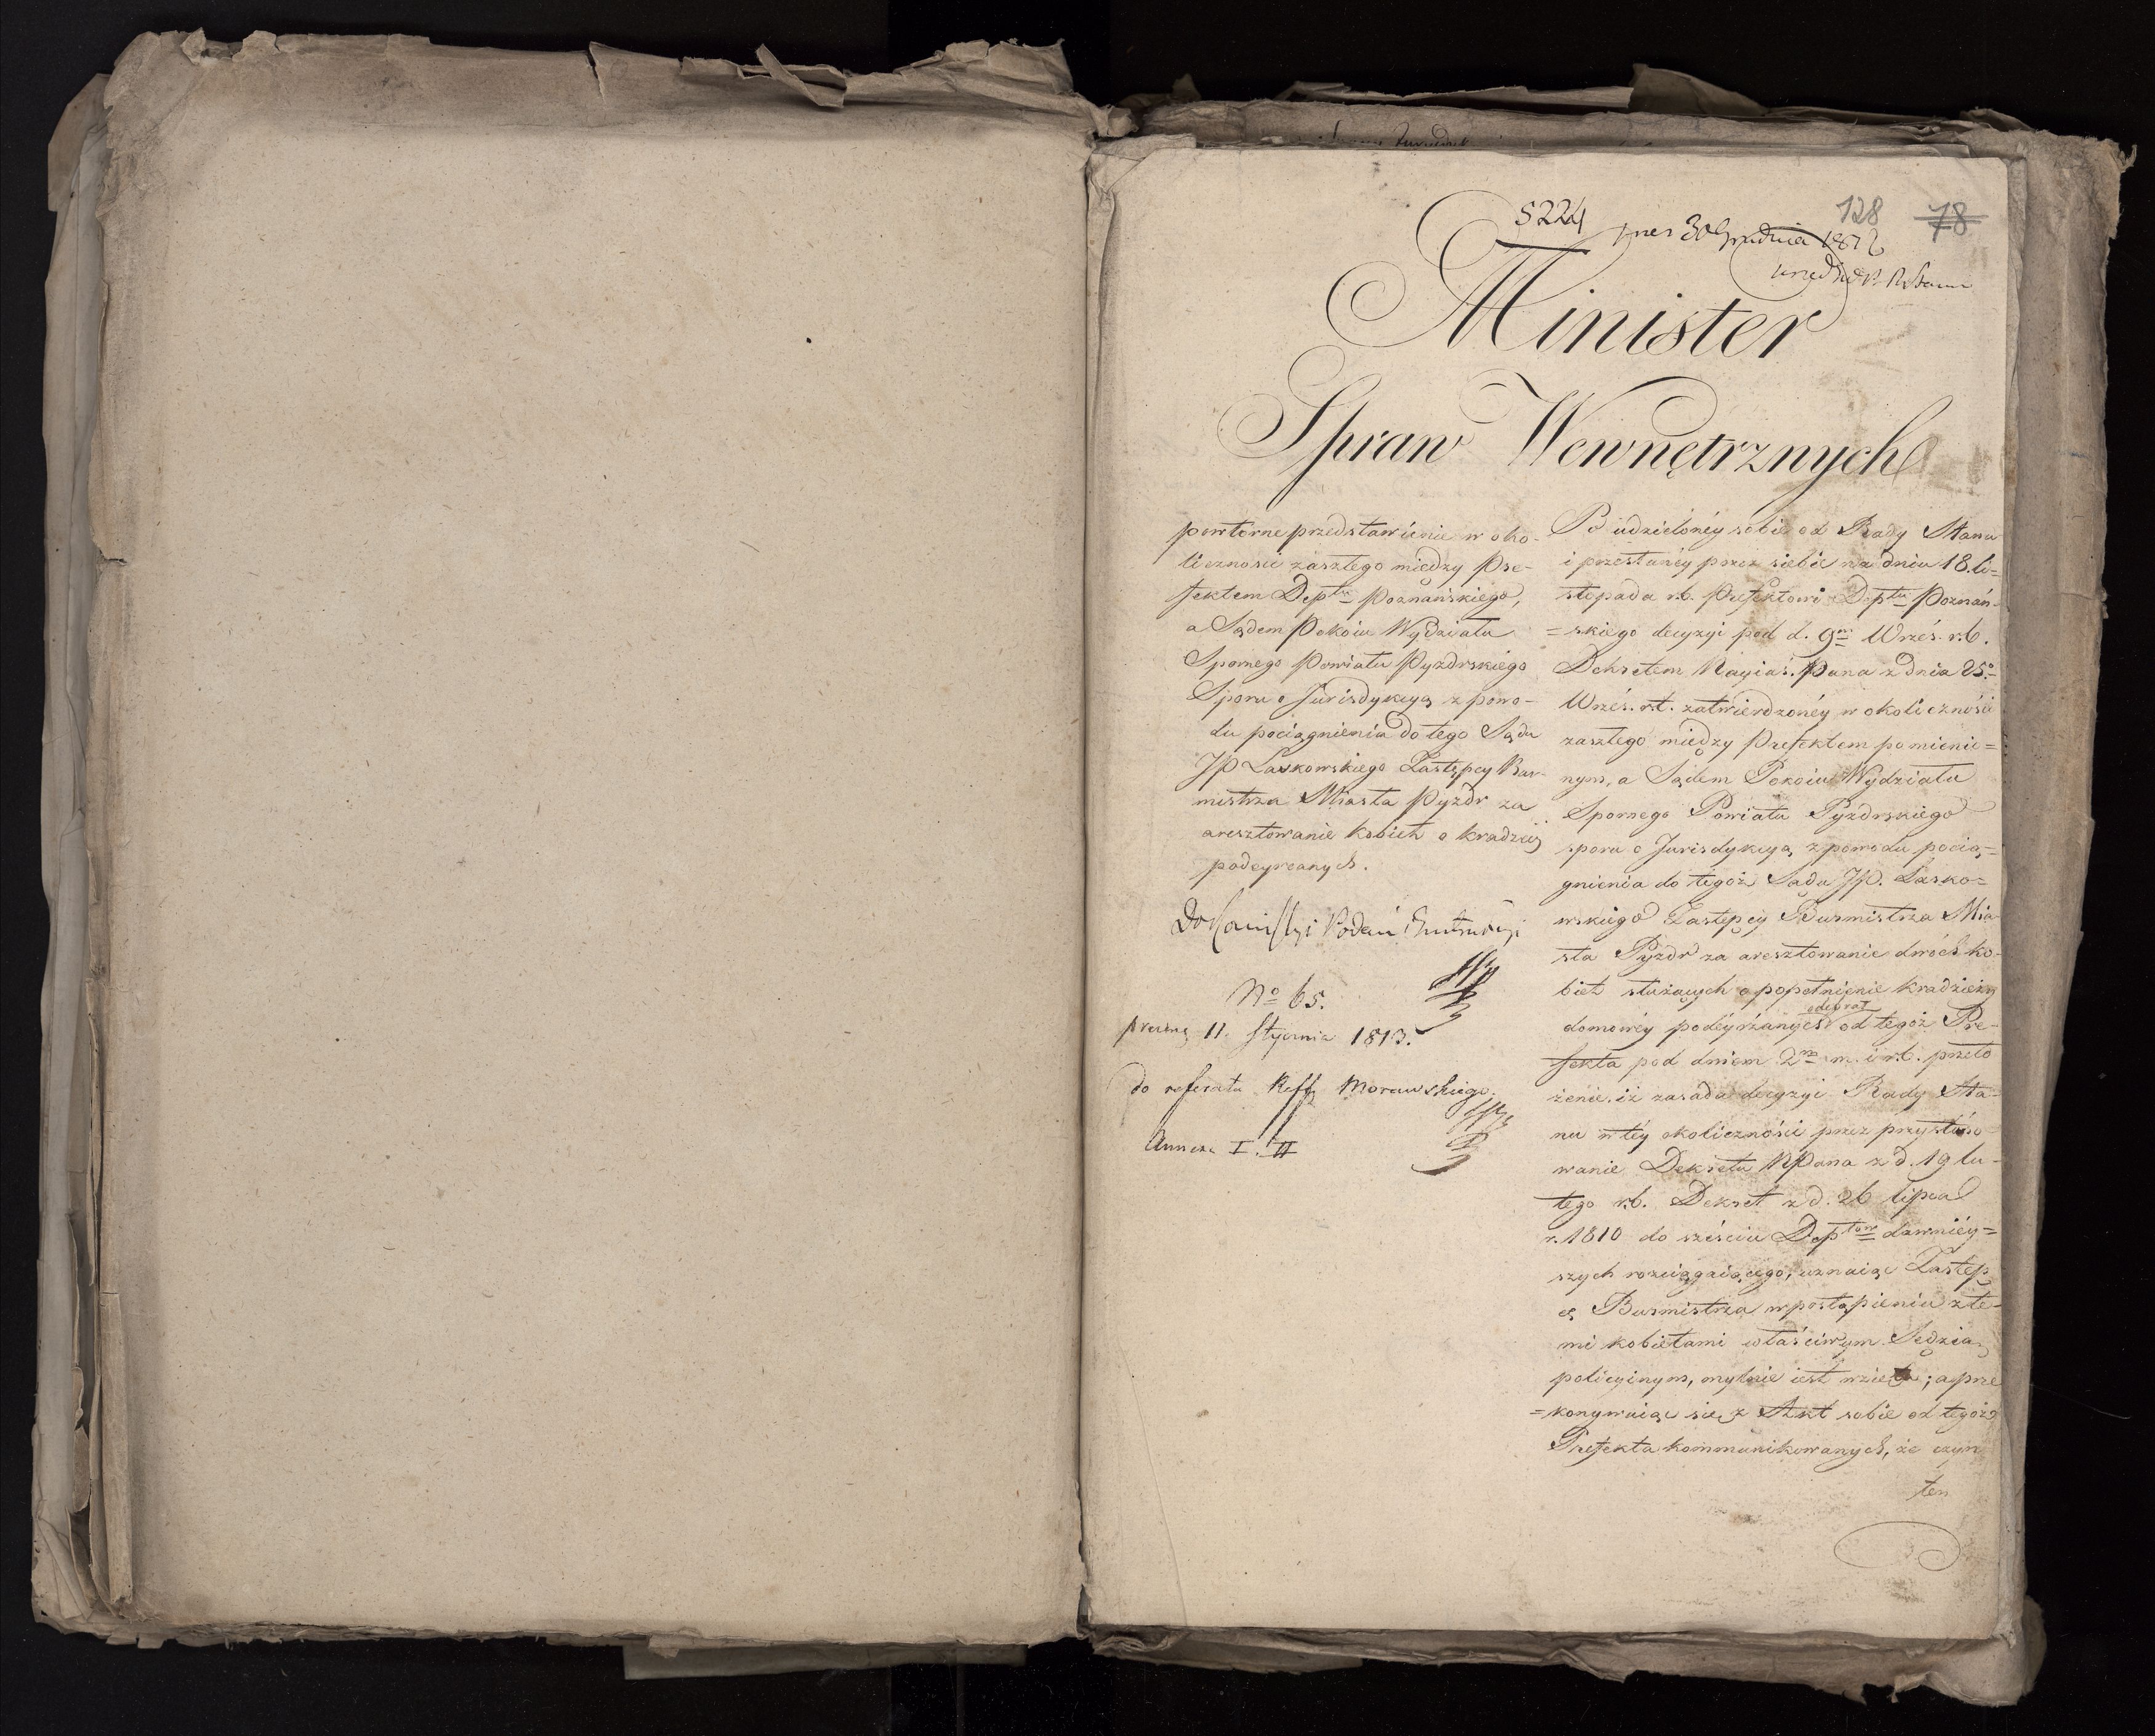 128 78
5224
pres 30 Grudnia 1812
Minister
Spraw Wewnętrznych
powtórne przedstawienie w oko-
liczności zaszłego między Pre-
fektem Deptu Poznańskiego,
a Sądem Pokoiu Wydziału
Spornego Powiatu Pyzdrskiego
Sporu o Jurisdykcyą z powo-
du pociągnienia do tego Sądu
JP Laskowskiego Zastępcy Bur-
mistrza Miasta Pyzdr za
aresztowanie kobiet o kradzież
podeyrzanych.
No 65.
11. Stycznia 1813.
do referatu Reff Morawskiego
Annexa I. II
Po udzielonéy sobie od Rady Stanu
i przesłanéy przez siebie na dniu 18. li=
stopada r.b. Prefektowi Deptu Poznań-
=skiego decyzyi pod d. 9m Wrześ. r.b.
Dekretem Nayiaś. Pana z dnia 25o=
Wrześ. r.t. zatwierdzonéy w okoliczności
zaszłego między Prefektem pomienio=
nym, a Sądem Pokoiu Wydziału
Spornego Powiatu Pyzdrskiego
sporu o Jurisdykcyą z powodu pocią=
gnienia do tegoż Sądu JP. Lasko=
wskiego Zastępcy Burmistrza Mia
sta Pyzdr za aresztowanie dwóch ko-
biet służących o popełnienie kradzieży
domowéy podéyrzanych odebrał od tegoż Pre-
fekta pod dniem 2m m. i r.b. przeło
żenie, iż zasada decyzyi Rady Sta-
nu w téy okoliczności przez przystóso-
wanie Dekretu NPana z d. 19 lu-
tego r.b. Dekret z d. 26 lipca
r. 1810 do sześciu Deptów dawniéy=
szych rozciągaiącego, uznaiąc Zastęp
cę Burmistrza w postąpieniu z te-
mi kobietami właściwym Sędzią
policyinym, mylnie iest wzięta; a prze
=konywaiąc się z Akt sobie od tegoż
Prefekta kommunikowanych, że czyn
ten